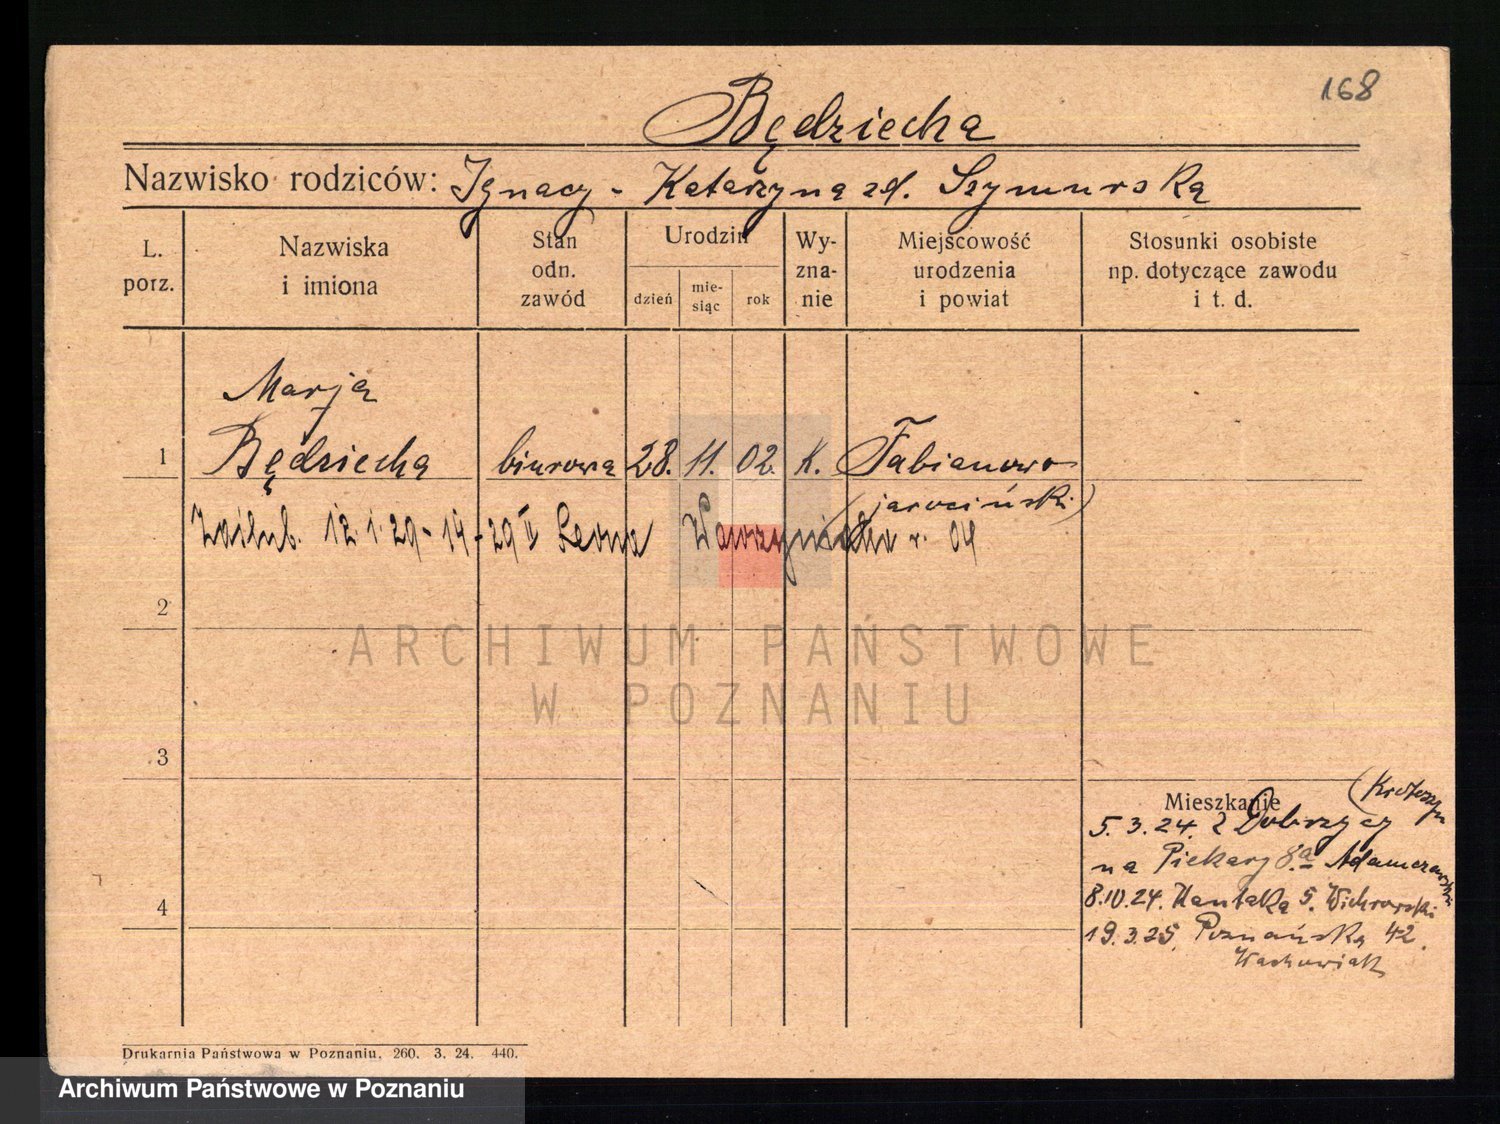 168
Będziecha
Nazwisko rodziców: Ignacy - Katarzyna zd. Szymurska
L. porz.
Nazwiska i imiona
Stan odn. zawód
Urodzin
dzień
mie- siąc
rok
Wy- zna- nie
Miejscowość urodzenia i powiat
Stosunki osobiste np. dotyczące zawodu i t. d.
Marja
1 Będziecha biurowa 28. 11. 02. K. Fabianowo
(jarociński)
Zaślub. 12.1.29 - 14 - 29 II Leona Wawrzyniaka r. 04
2
3
4
Mieszkanie
5.3.24. z Dobrzycy (Krotoszyn
na Piekary 8a Adamczewski
8.10.24. Kantaka 5. Wichrowski
19.3.25. Poznańska 42.
Wachowiak
ARCHIWUM PAŃSTWOWE
W POZNANIU
Drukarnia Państwowa w Poznaniu. 260. 3. 24. 440.
Archiwum Państwowe w Poznaniu